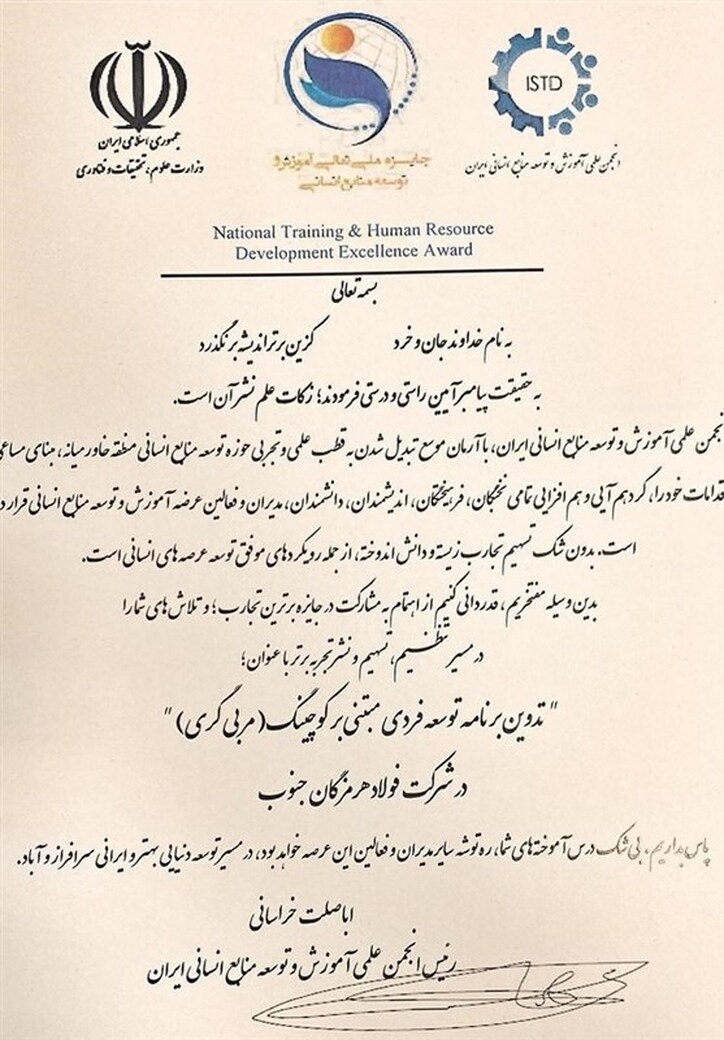 جمهوری اسلامی ایران
وزارت علوم، تحقیقات و فناوری
جایزه ملی تعالی آموزش و
توسعه منابع انسانی
ISTD
انجمن علمی آموزش و توسعه منابع انسانی ایران
National Training & Human Resource
Development Excellence Award
بسمه تعالی
به نام خداوند جان و خرد کزین برتر اندیشه بر نگذرد
به حقیقت پیامبر آیین راستی و درستی فرمودند؛ زکات علم نشر آن است.
نجمن علمی آموزش و توسعه منابع انسانی ایران، با آرمان موسع تبدیل شدن به قطب علمی و تجربی حوزه توسعه منابع انسانی منطقه خاورمیانه، مبنای مساعی
قدامات خود را، گردهم آیی و هم افزایی تمامی نخبگان، فرهیختگان، اندیشمندان، دانشمندان، مدیران و فعالین عرصه آموزش و توسعه منابع انسانی قرار د
است. بدون شک تسهیم تجارب زیسته و دانش اندوخته، از جمله رویکردهای موفق توسعه عرصه های انسانی است.
بدین وسیله مفتخریم، قدردانی کنیم از اهتمام به مشارکت در جایزه برترین تجارب؛ و تلاش های شما را
در مسیر تنظیم، تسهیم و نشر تجربه برتر با عنوان؛
" تدوین برنامه توسعه فردی مبتنی بر کوچینگ (مربی گری) "
در شرکت فولاد هرمزگان جنوب
پاس بداریم، بی شک درس آموخته های شما، ره توشه سایر مدیران و فعالین این عرصه خواهد بود، در مسیر توسعه دنیایی بهتر و ایرانی سرافراز و آباد.
اباصلت خراسانی
رئیس انجمن علمی آموزش و توسعه منابع انسانی ایران